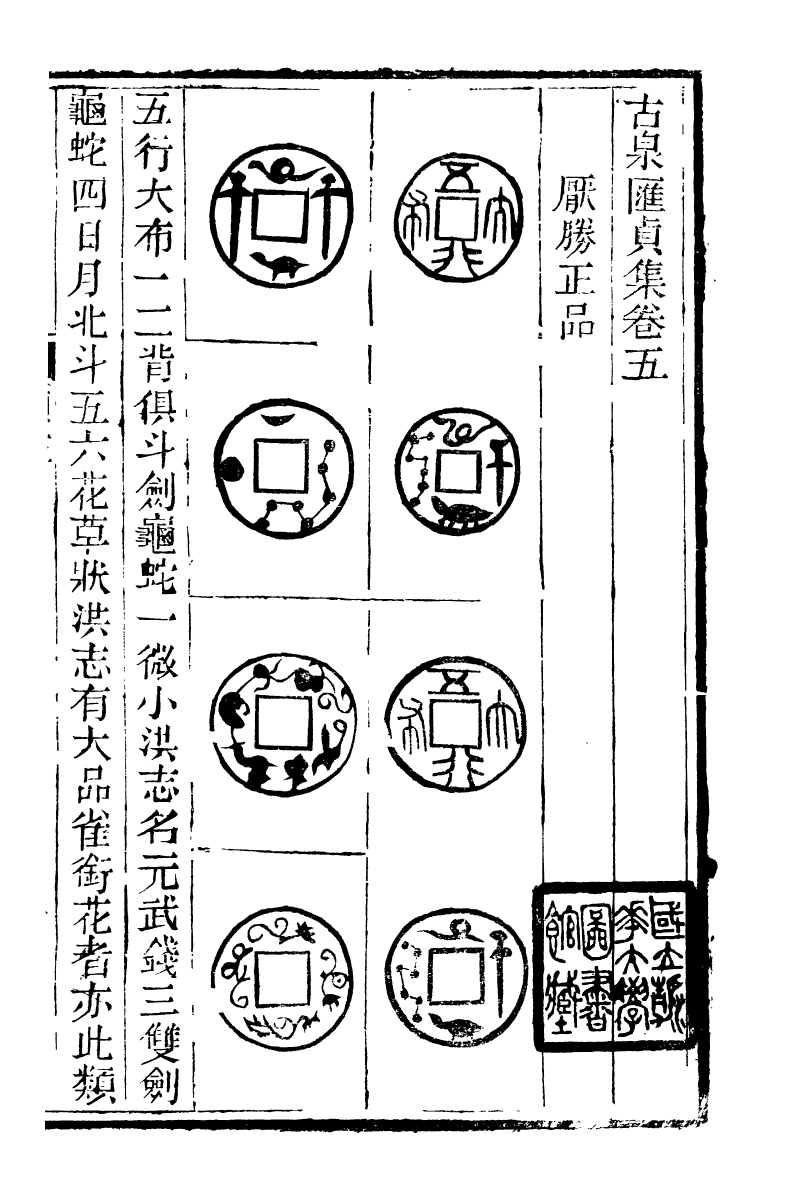 古泉匯貞集卷五
厭勝正品
五行大布
五行大布
五行大布一二背俱斗劍龜蛇一微小洪志名元武錢三雙劍
龜蛇四日月北斗五六花草狀洪志有大品雀銜花者亦此類
國立
大學
圖書
館藏